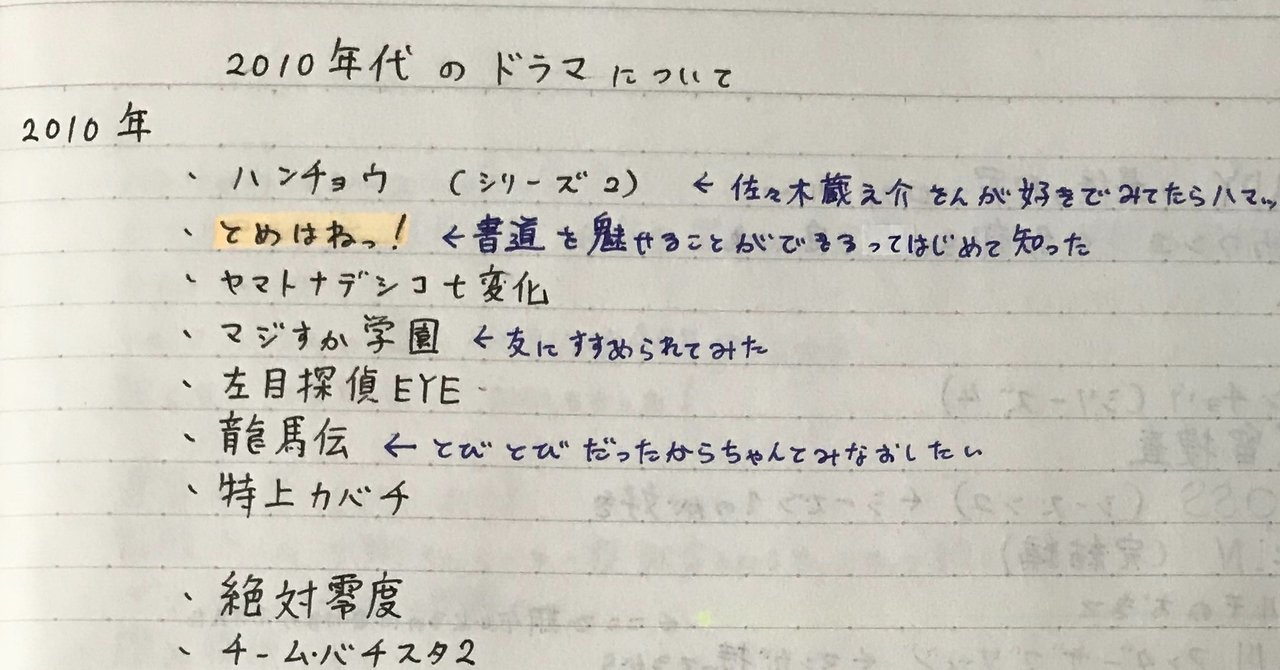 2010年代のドラマについて
2010年
・ハンチョウ (シリーズ2) ← 佐々木蔵之介さんが好きでみてたらハマッ
・とめはねっ! ← 書道を魅せることができるってはじめて知った
・ヤマトナデシコ七変化
・マジすか学園 ← 友にすすめられてみた
・左目探偵EYE
・龍馬伝 ← とびとびだったからちゃんとみなおしたい
・特上カバチ
・絶対零度
・チーム・バチスタ2